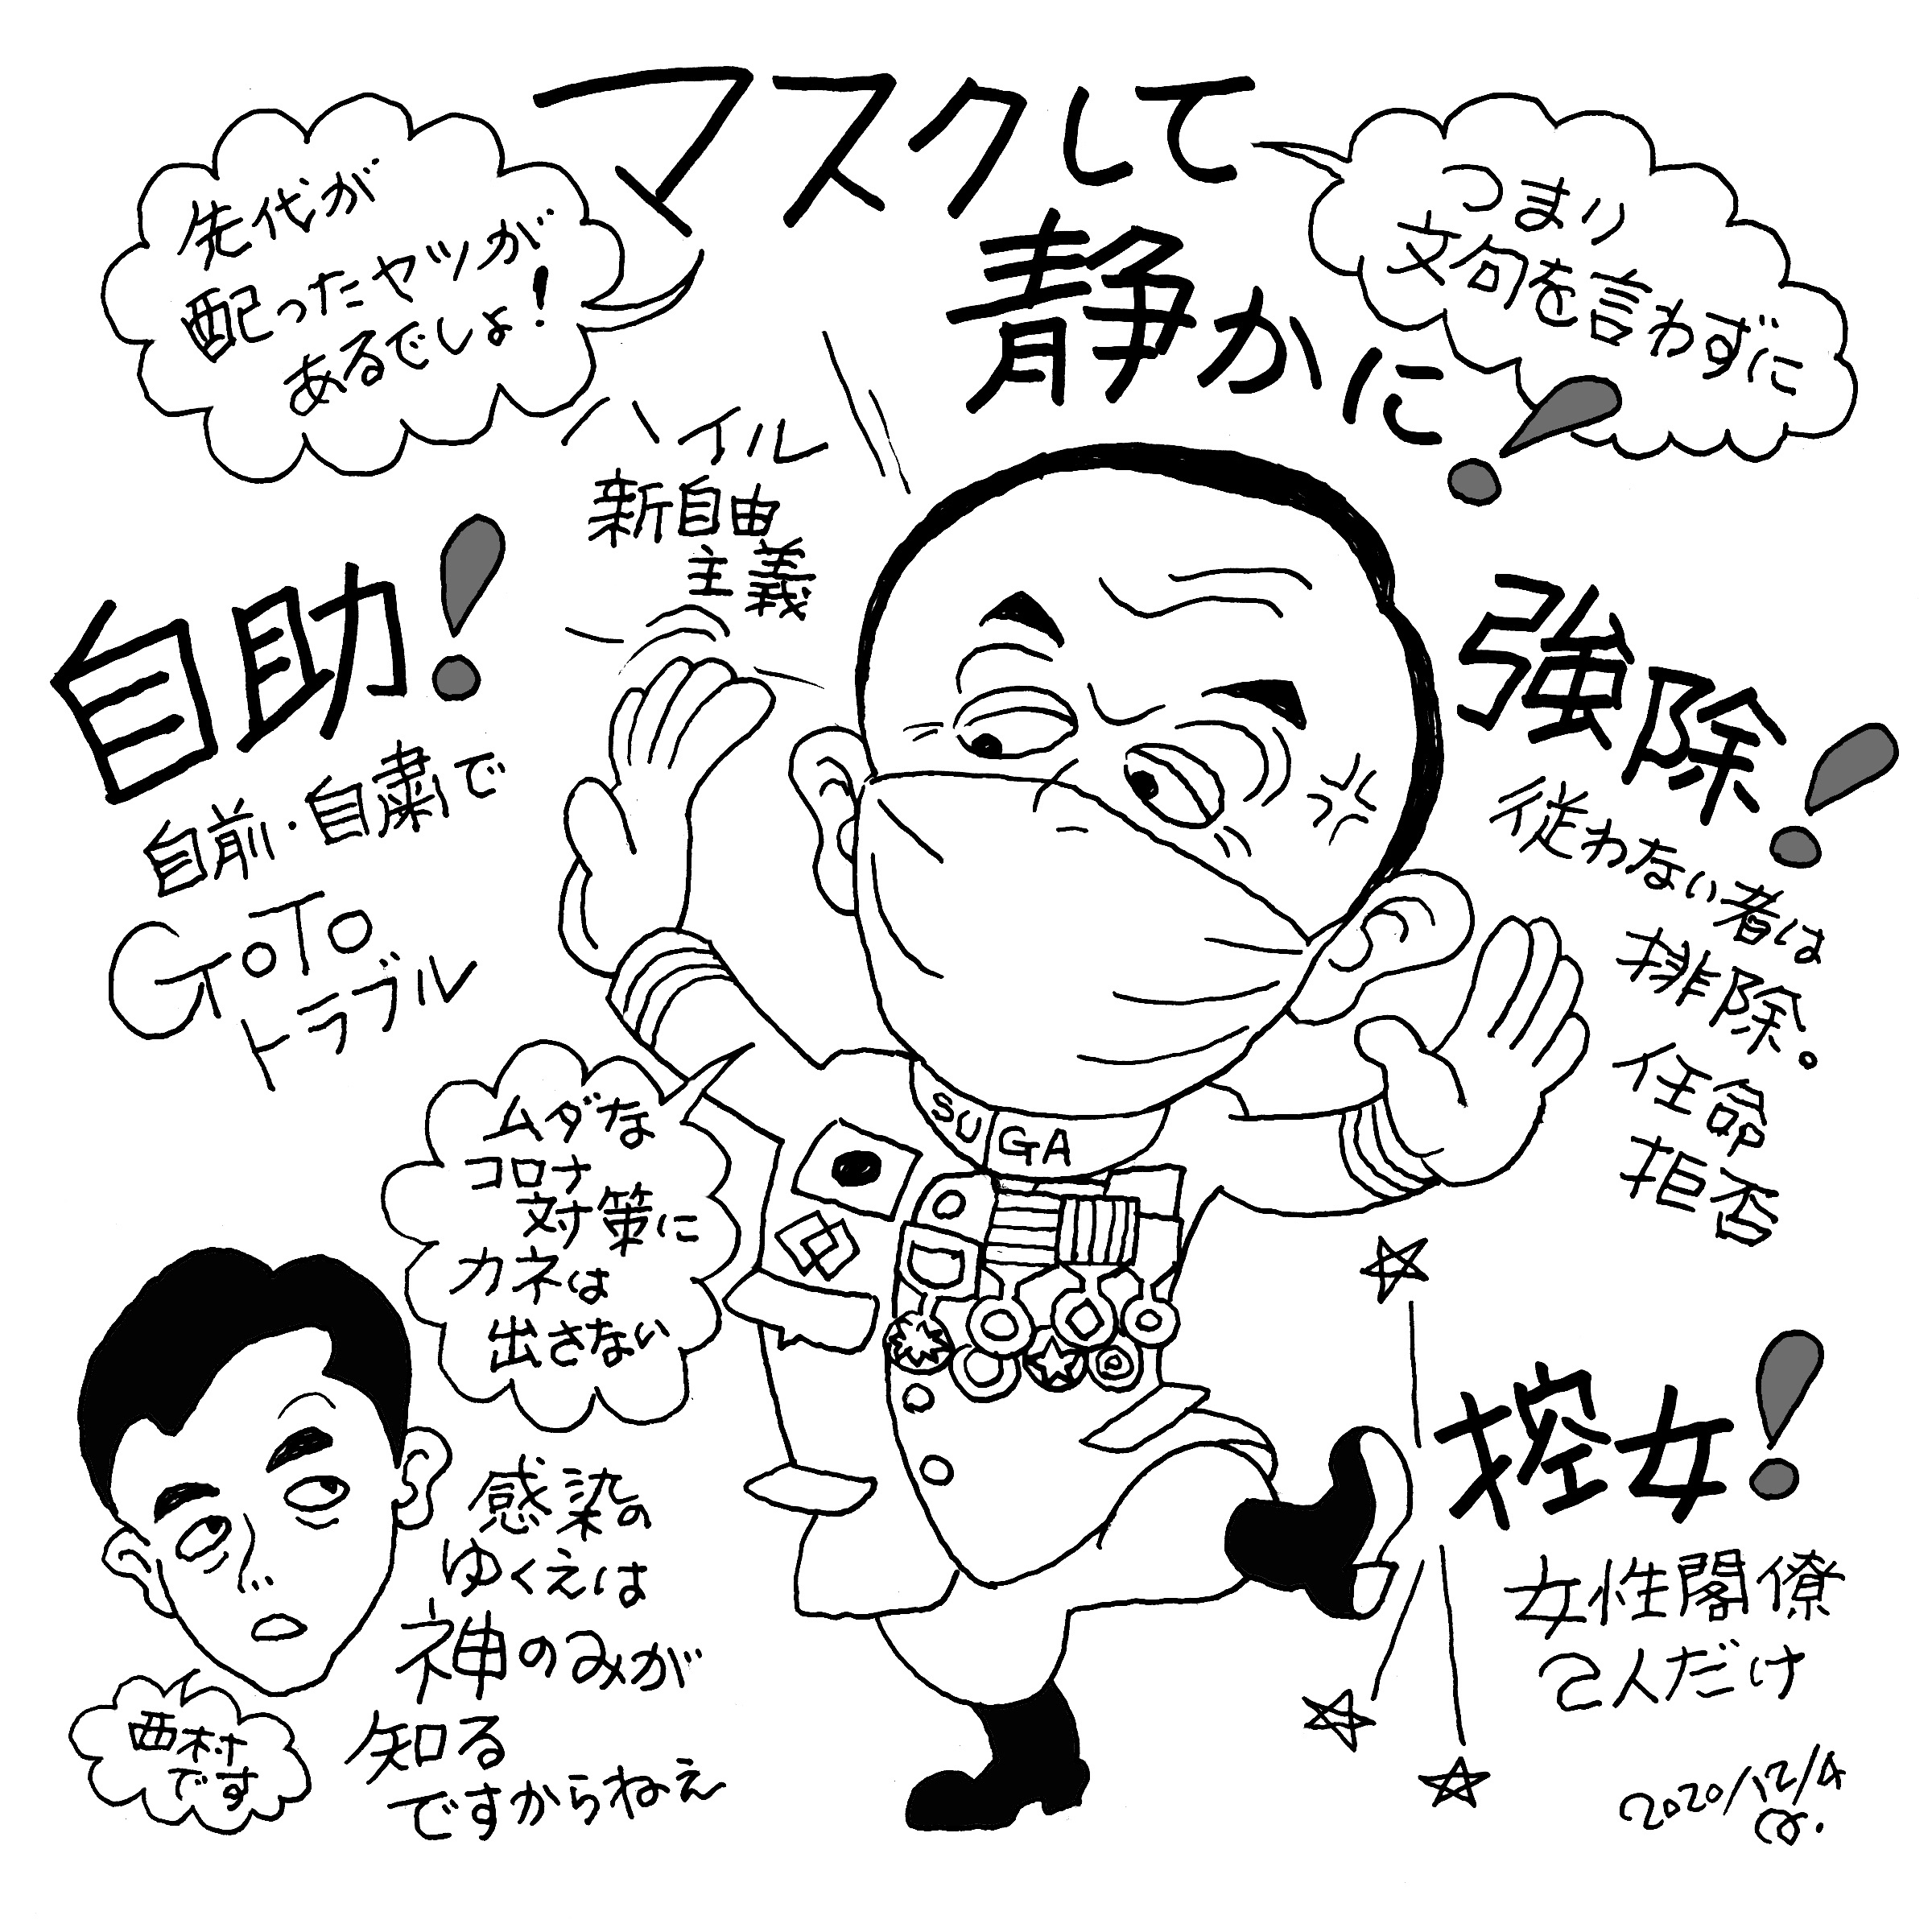 マスクして
静かに!
先代が
配ったヤツが
あるでしょ!
つまり
文句を言わずに
ハイル
新自由
主義
自助!
自前・自粛で
GoTo
トラブル
強除!
従わない者は
排除。
任命
拒否
SUGA
ムダな
コロナ
対策に
カネは
出さない
控女!
女性閣僚
2人だけ
感染の
ゆくえは
神のみが
知る
ですからねえ
西村
です
2020/12/4